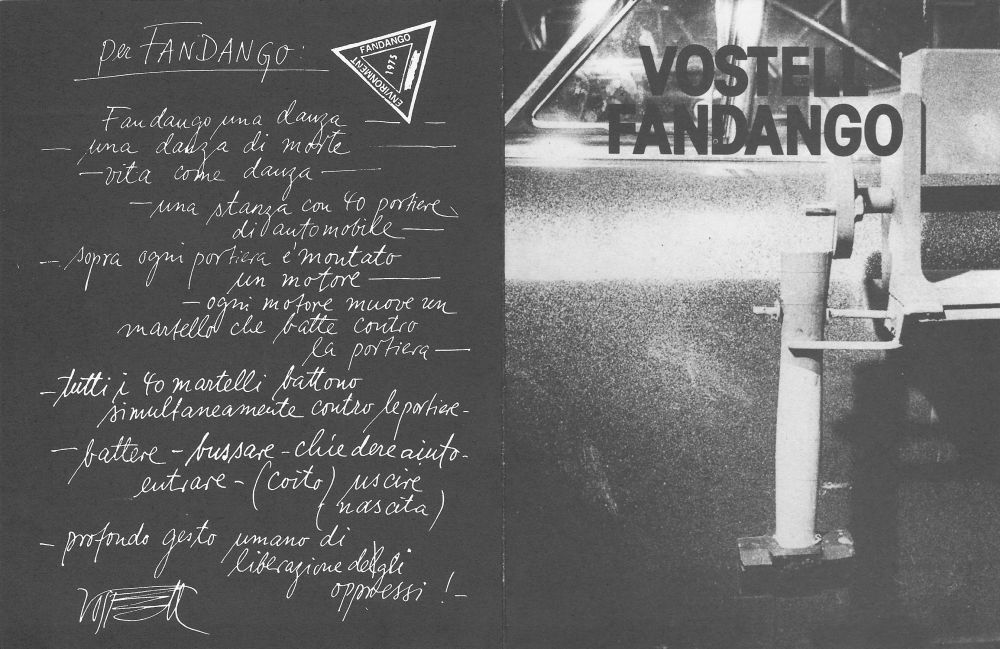 per FANDANGO:
FANDANGO
1975
ENVIRONMENT
Fandango una danza —
— una danza di morte
— vita come danza —
— una stanza con 40 portiere
di automobile —
— sopra ogni portiera é montato
un motore —
— ogni motore muove un
martello che batte contro
la portiera —
— tutti i 40 martelli battono
simultaneamente contro le portiere -
— battere - bussare - chiedere aiuto -
entrare - (coito) uscire
(nascita)
— profondo gesto umano di
liberazione degli
oppressi ! -
Vostell
VOSTELL
FANDANGO